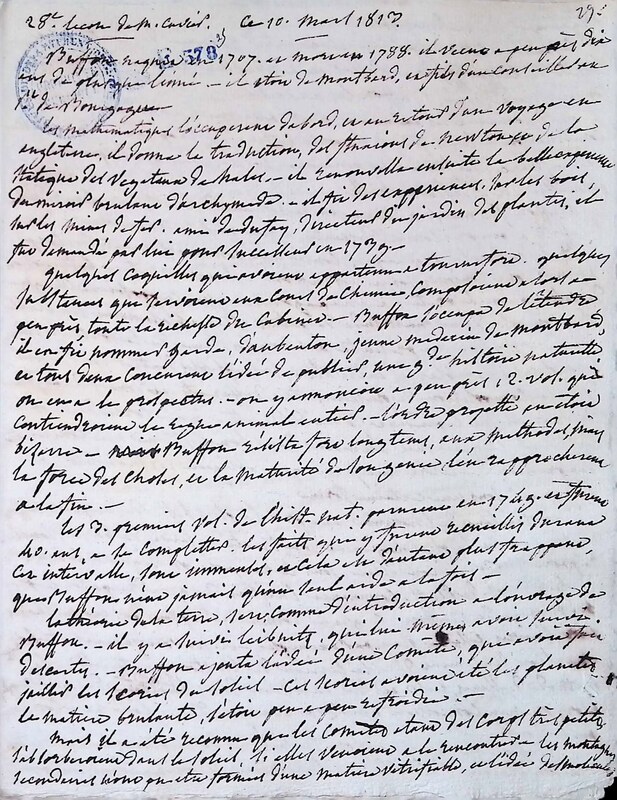 28e lecon de m. cuvier. Ce 10. Mars 1813. 29.
S. 578
Buffon naquit en 1707. et mourut en 1788. il vecut a peu près dix
ans de plus que linné - il etoit de montbard, et fils d'un conseiller au
de Bourgogne
les mathematiques l'occuperent d'abord, et au retour d'un voyage en
angleterre, il donna la traduction, des fluxions de newton et de la
statique des vegetaux de hales. - il renouvella ensuite la belle experience
du miroir brulant d'archymede. - il fit des experiences, sur les bois,
sur les mines de fer. ami de dufay, directeur du jardin des plantes, il
fut demandé par lui pour successeur en 1739 -
quelques coquilles qui avoient appartenu a tournefort. quelques
substances qui servoient aux Cours de Chimie, Composoient alors a
peu près toute la richesse du Cabinet. - Buffon s'occupa de l'etendre
il en fit nommer garde, daubenton, jeune medecin de montbard,
et tous deux Concurent l'idée de publier une histoire naturelle
on en a le prospectus. - on y annoncoit a peu près 12. vol. qui
Contiendroient le regne animal entier. - l'ordre projetté en etoit
bizarre - Buffon resista fort longtems, aux methodes, mais
la force des choses, et la maturité de son genie, l'en rapprocherent
a la fin. -
les 3. premiers vol. de l'hist. nat. parurent en 1749. et furent
40. ans, a se completter. les faits qui y furent recueillis durant
cet intervalle, sont immenses, et cela est d'autant plus frappant,
que Buffon n'eut jamais qu'un seul aide a la fois -
la théorie de la terre, sert, comme d'introduction a l'ouvrage de
Buffon. - il y a suivi leibnitz, qui lui meme avoit suivi
descartes. - Buffon ajouta l'idée d'une Comète, qui avoit fait
jaillir les scories du soleil - Ces scories avoient été les planetes
la matiere brulante, s'etoit peu a peu refroidie. -
mais il a été reconnu que les Comètes etant des Corps très petits,
s'absorberoient dans le soleil, si elles venoient a le rencontrer - les montagnes
secondaires n'ont pu etre formées d'une matiere vitrifiable, et l'idée des molecules